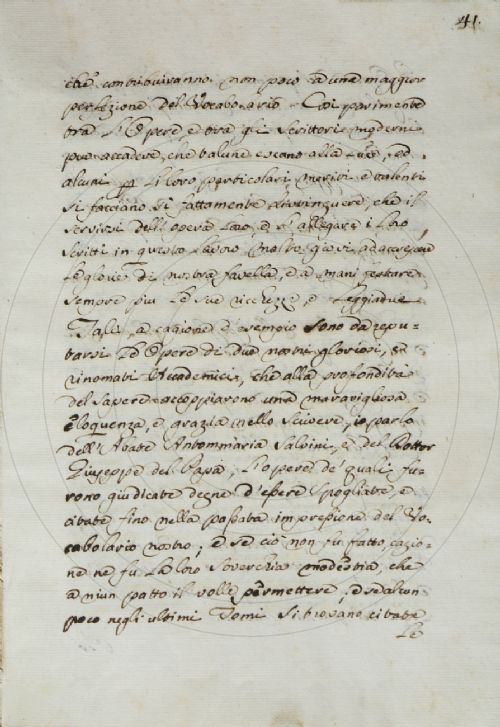 41.
che contribuiranno non poco a una maggior
perfezione del Vocabolario. Così parimente
tra l'Opere, e tra gli Scrittori moderni
può accadere, che talune escano alla luce, ed
alcuni per li loro particolari meriti e talenti
si facciano sì fattamente distinguere, che il
servirsi dell'opera loro, e l'allegare i loro
scritti in questo lavoro molto giovi ad accrescere
le glorie di nostra favella, e a manifestare
sempre più le sue ricchezze, e leggiadrie
Tali, a cagione d'esempio sono da repu-
tarsi le Opere di due nostri gloriosi, e
rinomati Accademici, che alla profondità
del sapere accoppiarono una maravigliosa
eloquenza, e grazia nello scrivere, io parlo
dell'Abate Antommaria Salvini, e del Dottor
Giuseppe del Papa, l'opere de' quali fu-
rono giudicate degne d'essere spogliate, e
citate fino nella passata impressione del Vo-
cabolario nostro; e se ciò non fu fatto, cagio-
ne ne fu la loro soverchia modestia, che
a niun patto il volle permettere; e se alcun
poco negli ultimi Tomi si trovano citate
Le